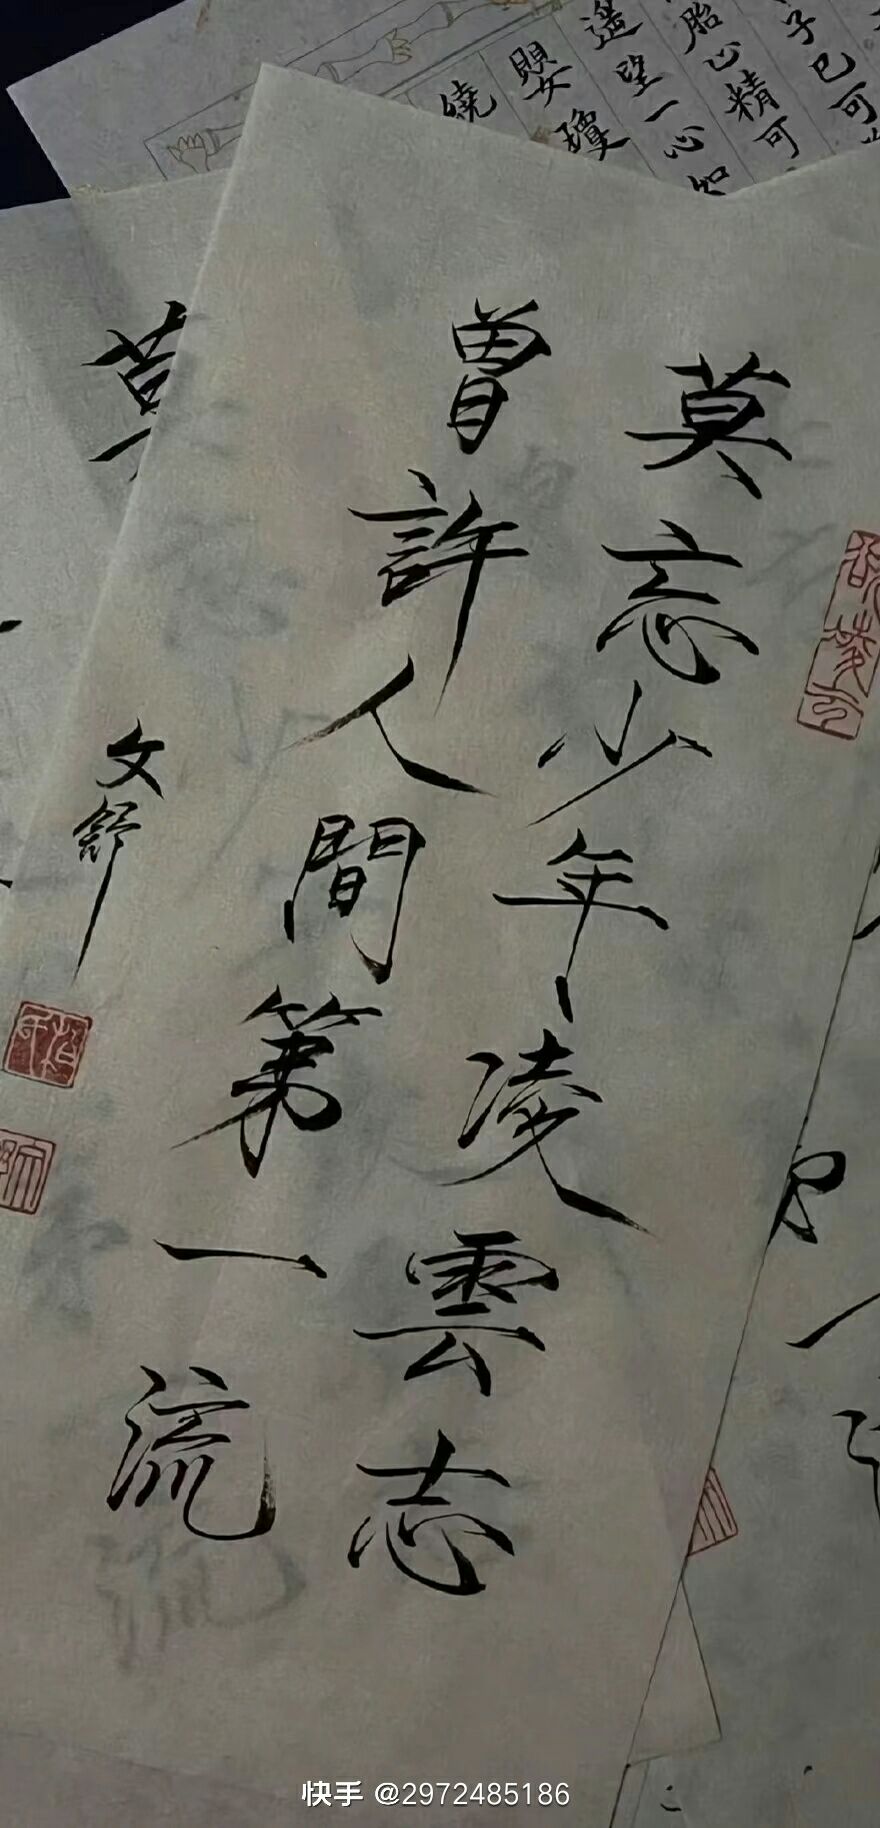 莫忘少年凌雲志
曾許人間第一流
文舒
莫
子已可
胎心精可
遥望一心知
嬰瓊
繞
快手 @2972485186